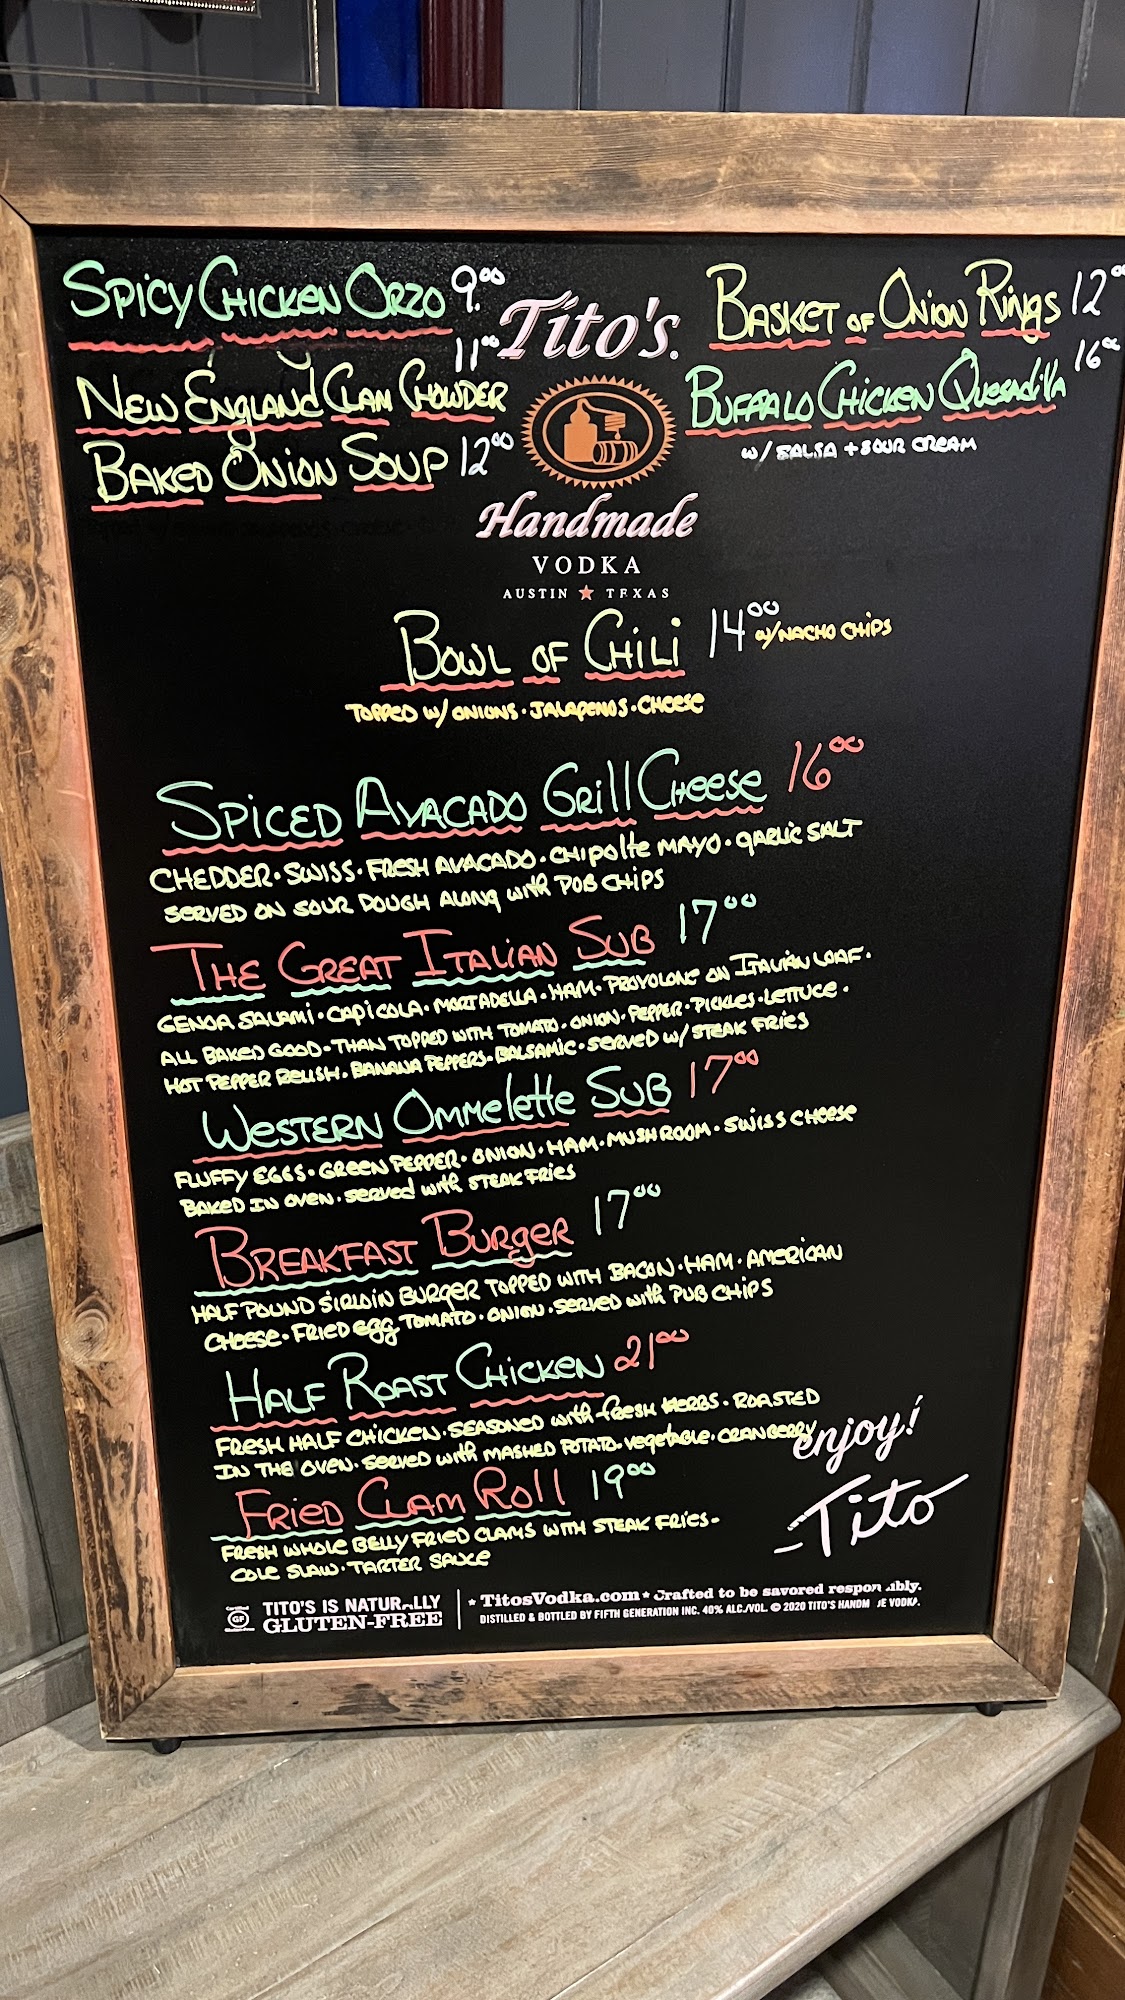 Spicy Chicken Orzo 9.00
New England Clam Chowder 11.00
Baked Onion Soup 12.00
Basket of Onion Rings 12.00
Buffalo Chicken Quesadilla 16.00
w/ Salsa + Sour Cream
Tito's
Handmade
VODKA
AUSTIN ★ TEXAS
Bowl of Chili 14.00 w/Nacho Chips
Topped w/ Onions • Jalapenos • Cheese
Spiced Avacado Grill Cheese 16.00
Chedder • Swiss • Fresh Avacado • Chipolte Mayo • Garlic Salt
Served on Sour Dough Along with Pub Chips
The Great Italian Sub 17.00
Genoa Salami • Capicola • Mortadella • Ham • Provolone on Italian Loaf •
All Baked Good • Than Topped with Tomato • Onion • Pepper • Pickles • Lettuce •
Hot Pepper Relish • Banana Peppers • Balsamic • Served w/ Steak Fries
Western Ommelette Sub 17.00
Fluffy Eggs • Green Pepper • Onion • Ham • Mushroom • Swiss Cheese
Baked in Oven • Served with Steak Fries
Breakfast Burger 17.00
Half Pound Sirloin Burger Topped with Bacon • Ham • American
Cheese • Fried Egg Tomato • Onion • Served with Pub Chips
Half Roast Chicken 21.00
Fresh Half Chicken • Seasoned with Fresh Herbs • Roasted
in the Oven • Served with Mashed Potato • Vegetable • Cranberry
enjoy!
Fried Clam Roll 19.00
-Tito
Fresh Whole Belly Fried Clams with Steak Fries •
Cole Slaw • Tarter Sauce
Certified GF Gluten-Free
TITO'S IS NATURALLY
GLUTEN-FREE
★ TitosVodka.com ★ Crafted to be savored responsibly.
DISTILLED & BOTTLED BY FIFTH GENERATION INC. 40% ALC./VOL. © 2020 TITO'S HANDMADE VODKA.